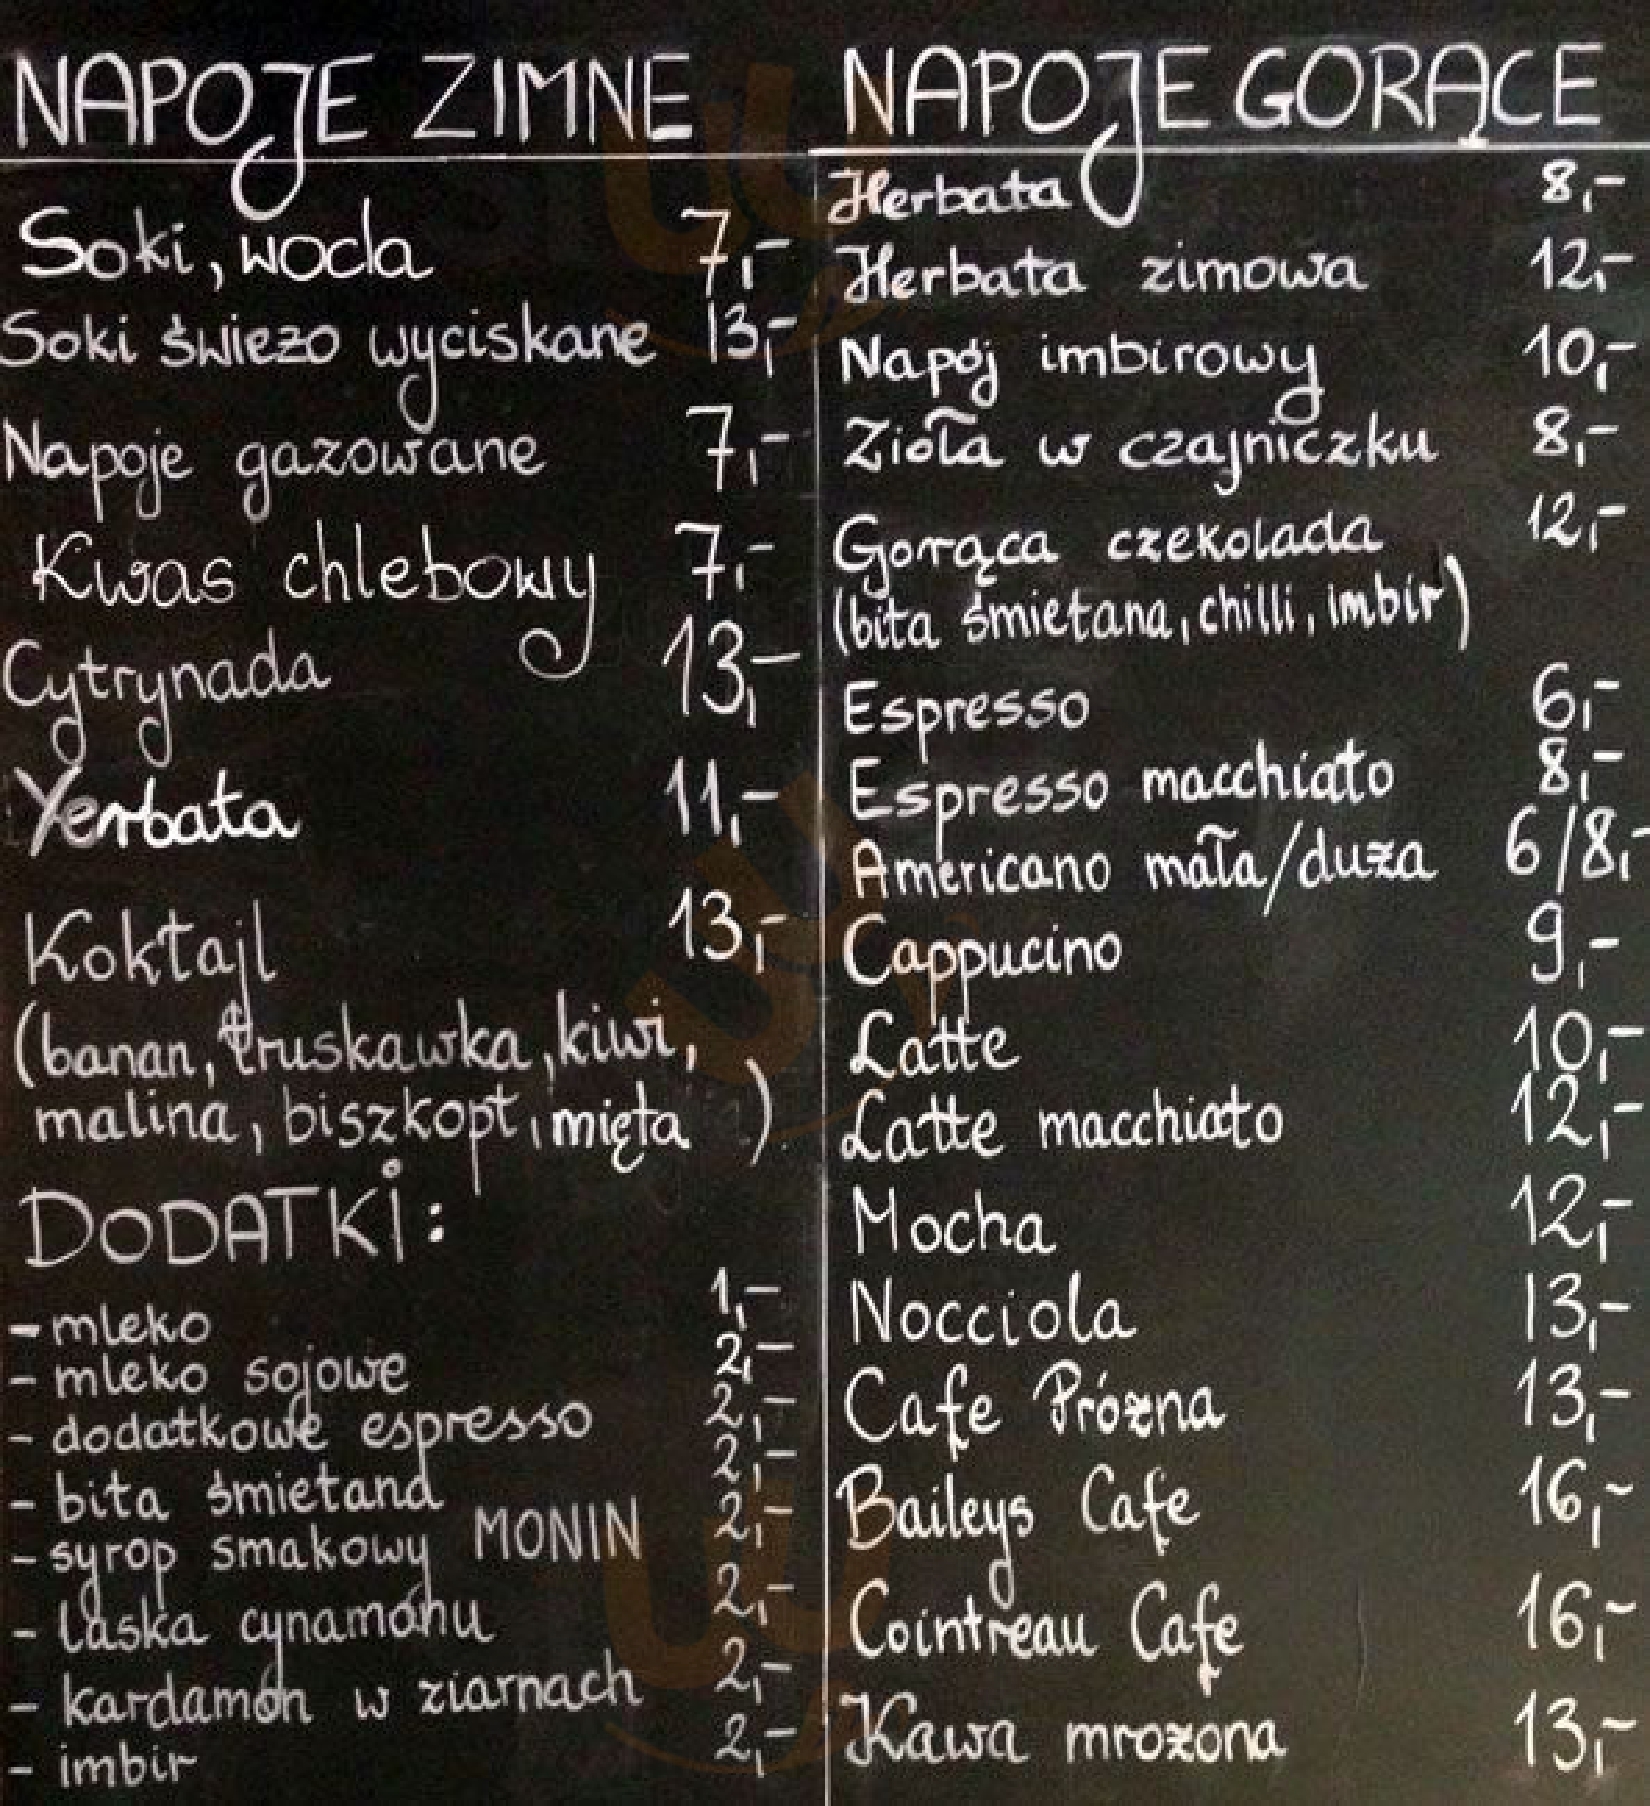 NAPOJE ZIMNE
Soki, woda 7,-
Soki świeżo wyciskane 13,-
Napoje gazowane 7,-
Kwas chlebowy 7,-
Cytrynada 13,-
Yerbata 11,-
Koktajl 13,-
(banan, truskawka, kiwi,
malina, biszkopt, mięta )
DODATKI:
- mleko 1,-
- mleko sojowe 2,-
- dodatkowe espresso 2,-
- bita śmietana 2,-
- syrop smakowy MONIN 2,-
- laska cynamonu 2,-
- kardamon w ziarnach 2,-
- imbir 2,-
NAPOJE GORĄCE
Herbata 8,-
Herbata zimowa 12,-
Napój imbirowy 10,-
Zioła w czajniczku 8,-
Gorąca czekolada 12,-
(bita śmietana, chilli, imbir)
Espresso 6,-
Espresso macchiato 8,-
Americano mała/duża 6/8,-
Cappucino 9,-
Latte 10,-
Latte macchiato 12,-
Mocha 12,-
Nocciola 13,-
Cafe Próżna 13,-
Baileys Cafe 16,-
Cointreau Cafe 16,-
Kawa mrożona 13,-